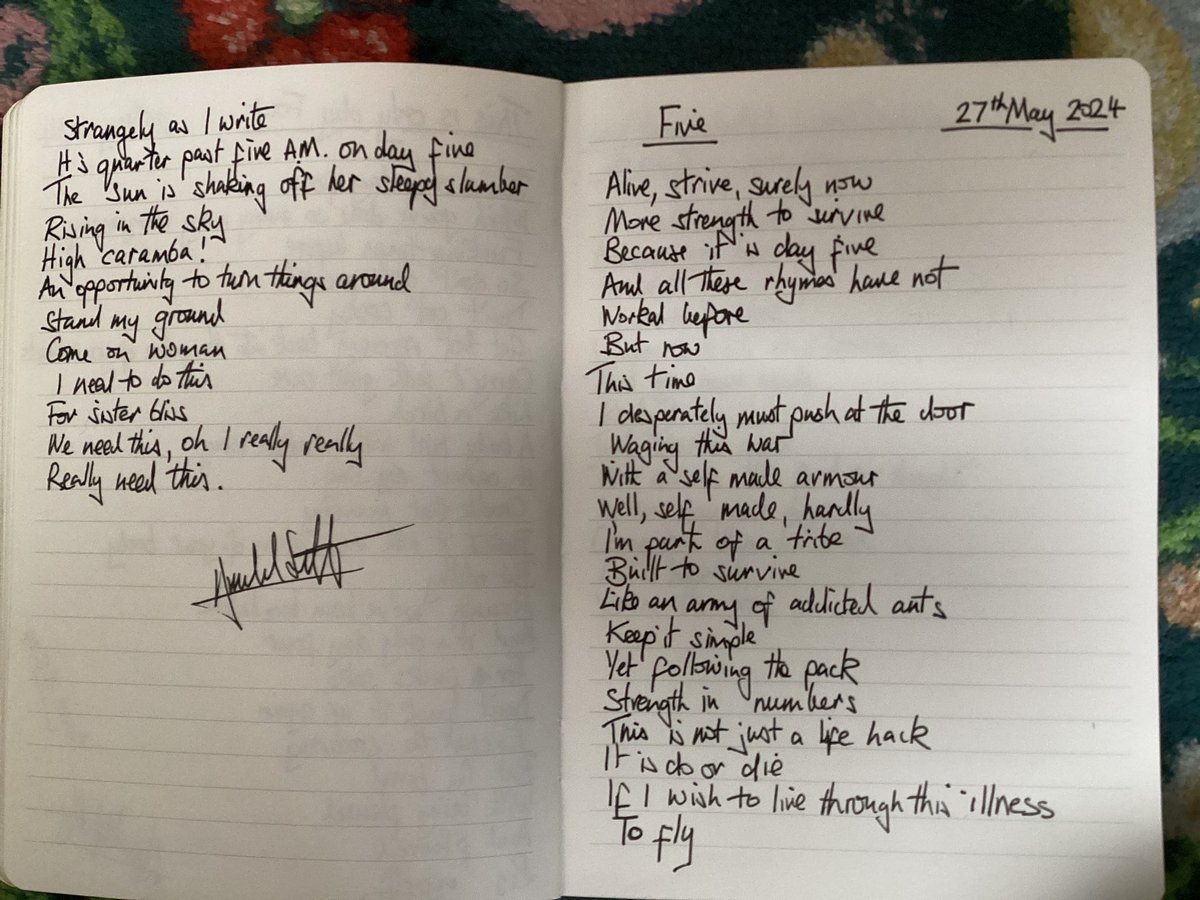 Strangely as I write
It's quarter past five A.M. on day five
The sun is shaking off her sleepy slumber
Rising in the sky
High caramba!
An opportunity to turn things around
Stand my ground
Come on woman
I need to do this
For sister bliss
We need this, oh I really really
Really need this.
Five
27th May 2024
Alive, strive, surely now
More strength to survive
Because it is day five
And all these rhymes have not
Worked before
But now
This time
I desperately must push at the door
Waging this war
With a self made armour
Well, self made, hardly
I'm part of a tribe
Built to survive
Like an army of addicted ants
Keep it simple
Yet following the pack
Strength in numbers
This is not just a life hack
It is do or die
If I wish to live through this illness
To fly